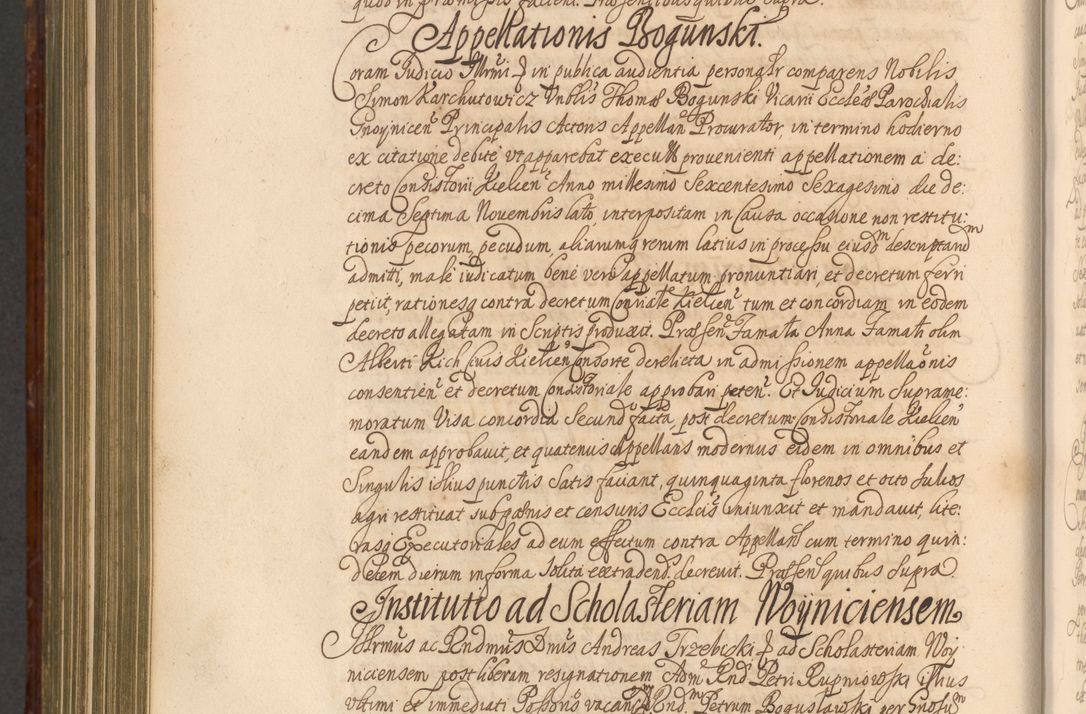 quos in præmissis facien. Præsentibus quibus supra.
Appellationis Bogunski.
Coram Judicio Illrmi P in publica audientia personalr comparens Nobilis
Simon Karchutowicz Vnblis Thomæ Bogunski Vicarii Eccleæ Parochialis
Principalis Actoris Appellan Procurator, in termino hodierno
ex citatione debite vt apparebat execut prouenienti appellationem a de:
creto Consistorii Kielcen Anno millesimo Sexcentesimo Sexagesimo die de:
cima Septima Novembris lato, interpositam in Causa occasione non restitu:
tionis pecorum, pecudum, aliarumq rerum latius in processu eiusdm descriptarum
admitti, male iudicatum bene vero appellatum pronuntiari, et decretum ferri
petiit, rationesq contra decretum Consriale Kielcen tum et concordiam in eodem
decreto allegatam in Scriptis produxit. Præsen Famata Anna Famati olim
Alberti Kich Ciuis Kielcen Consorte derelicta in admissionem appellaonis
consentien et decretum Consistoriale approbari peten. Et Judicium Suprame:
moratum Visa concordia Secund facta, post decretum Consistoriale Kielcen
eandem approbauit, et quatenus Appellans modernus eidem in omnibus et
Singulis illius punctis Satis faciant, quinquaginta florenos et octo Julios
agri restituat sub pœnis et censuris Ecclcis iniunxit et mandauit, lite:
rasq Executoriales ad eum effectum contra Appellan cum termino quin:
decem dierum in forma solita extradend. decreuit. Præsen quibus Supra.
Institutio ad Scholasteriam Woyniciensem
Illrmus ac Rndmus Dnus Andreas Trzebicski P ad Scholasteriam Woy
niciensem post liberam resignationem Adm Rndi Petri Rupniowski Illius
vltimi et immediati Possoris vacan Rnd Petrum Boguslawski per